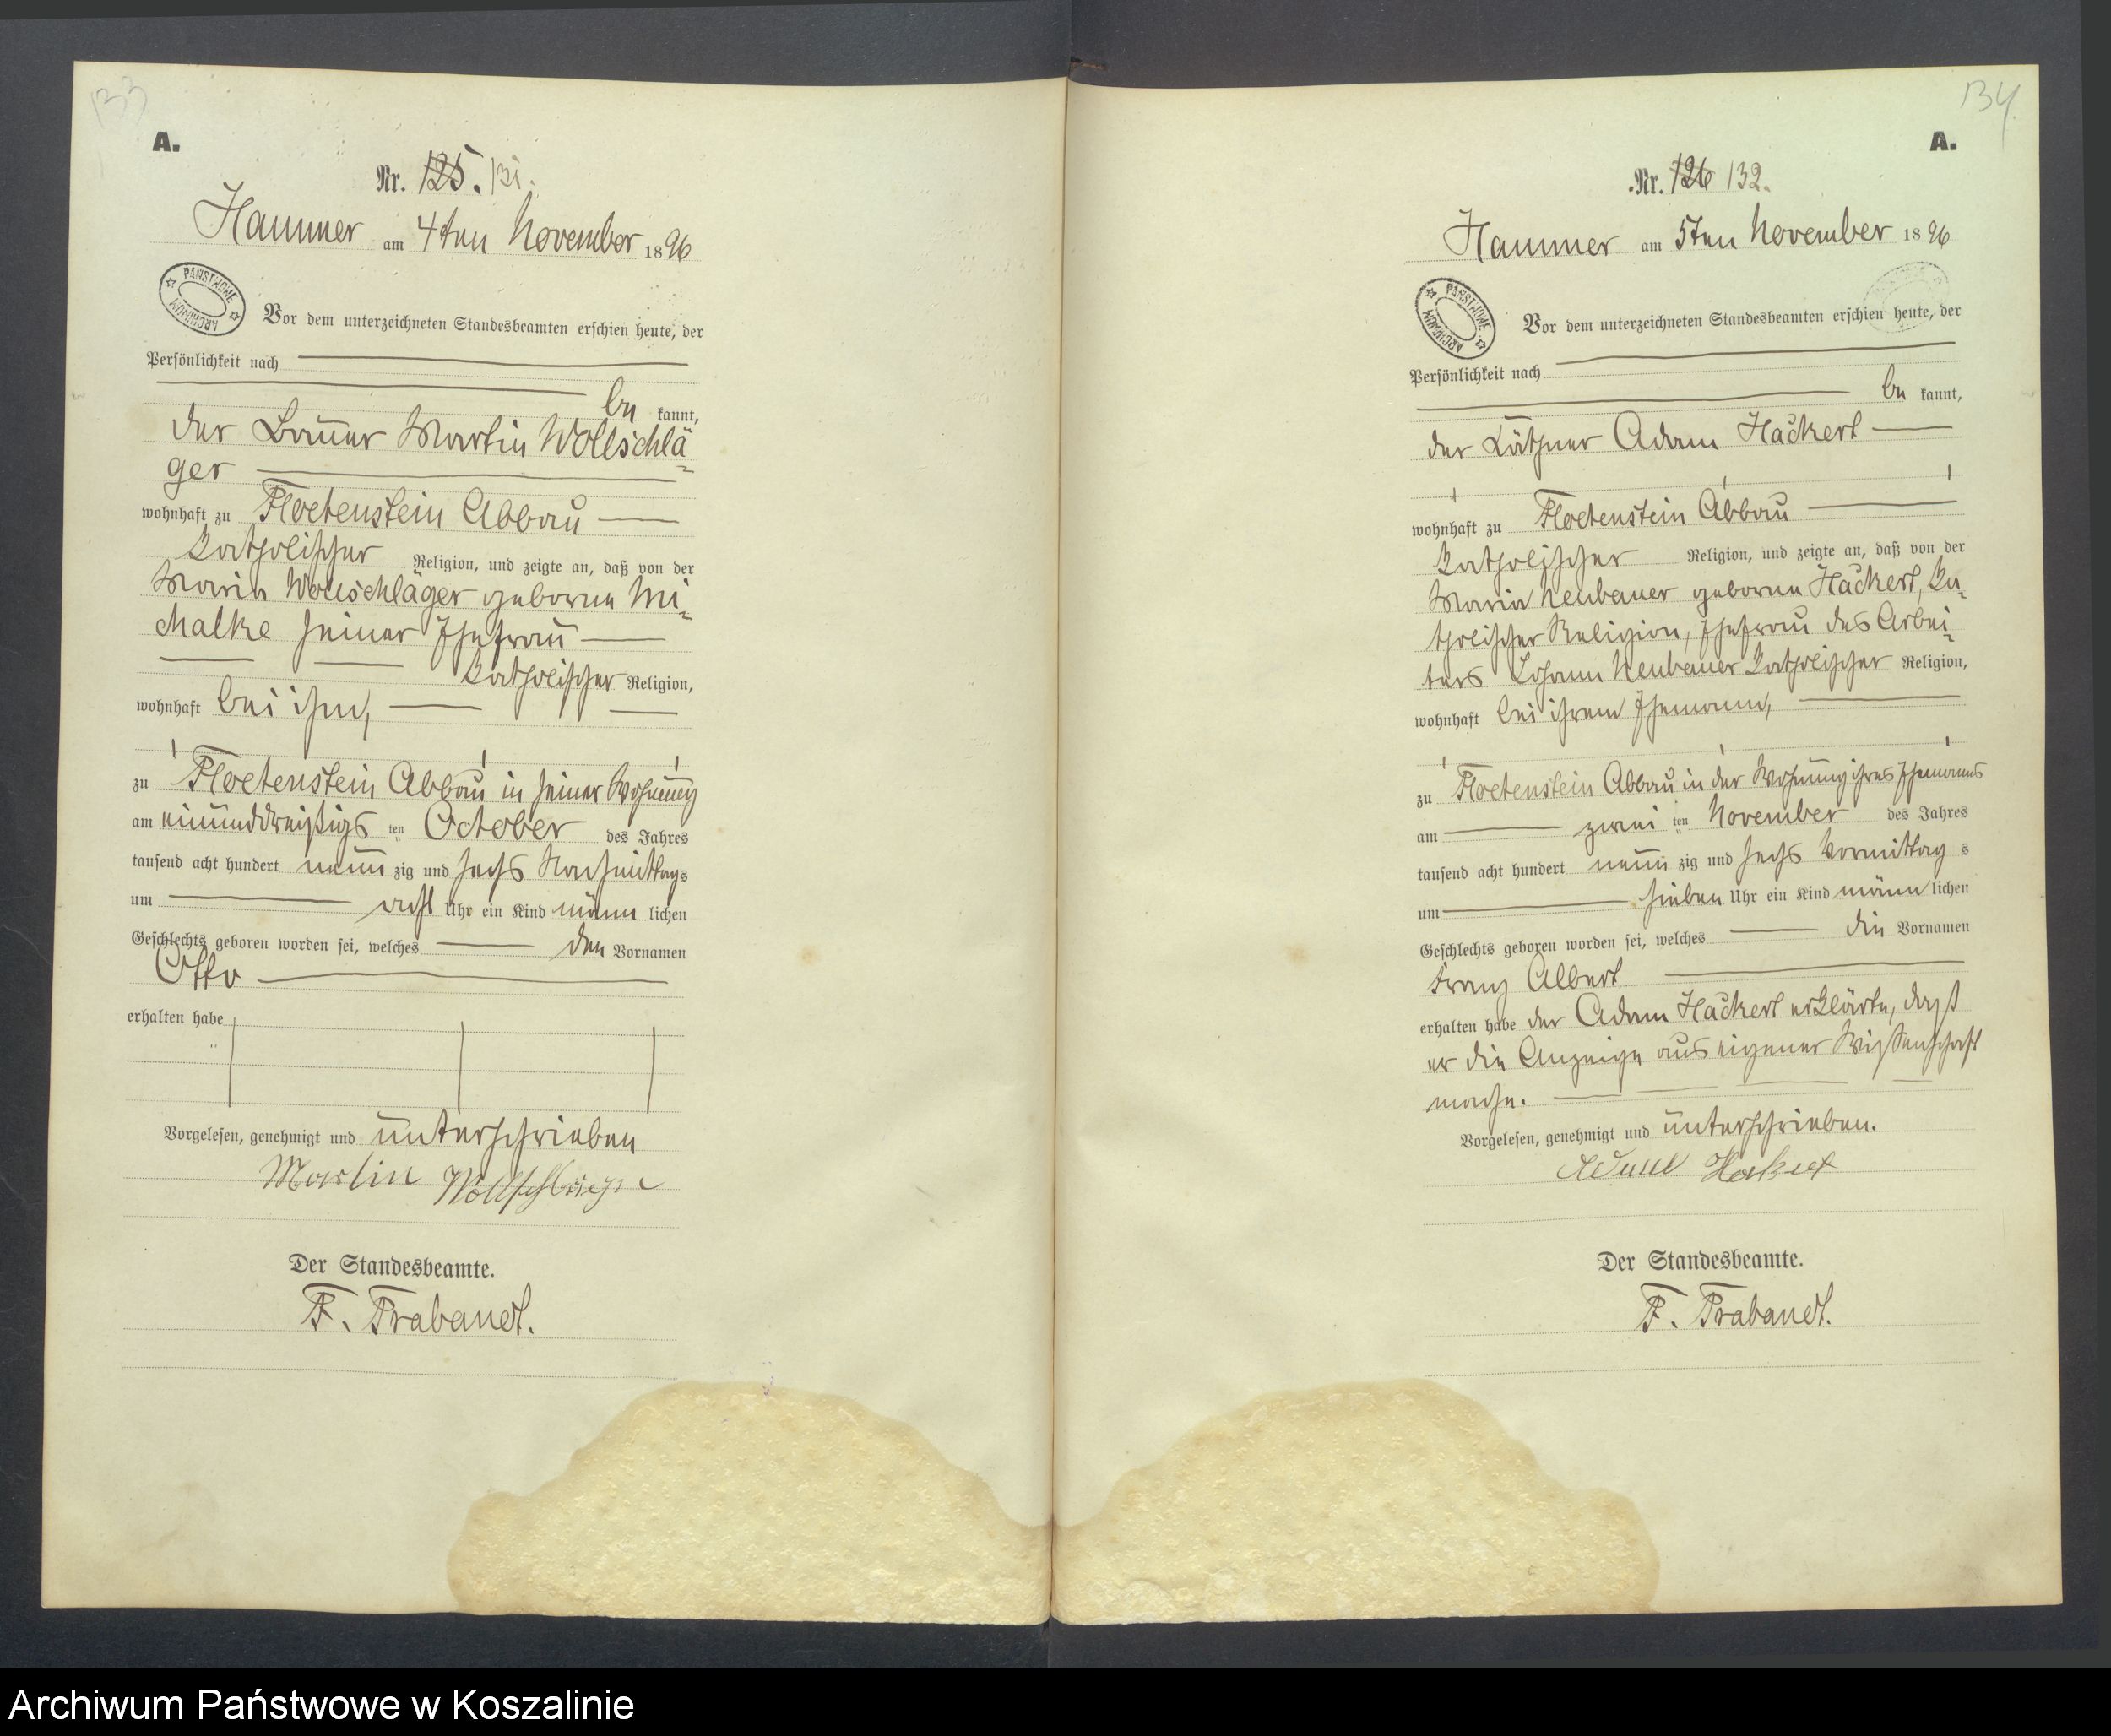 133
A.
Nr. 125. 131.
Hammer am 4ten November 1896
PAŃSTWOWE ARCHIWUM
Vor dem unterzeichneten Standesbeamten erschien heute, der
Persönlichkeit nach
be kannt,
der Bauer Martin Wollschlä-
ger
wohnhaft zu Floetenstein Abbau
katholischer Religion, und zeigte an, daß von der
Maria Wollschläger geborne Mi-
chalke seiner Ehefrau
katholischer Religion,
wohnhaft bei ihm,
zu Floetenstein Abbau in seiner Wohnung
am einunddreißigs ten October des Jahres
tausend acht hundert neun zig und sechs Nachmittags
um acht Uhr ein Kind männ lichen
Geschlechts geboren worden sei, welches den Vornamen
Otto
erhalten habe
Vorgelesen, genehmigt und unterschrieben
Martin Wollschläger
Der Standesbeamte.
F. Trabandt.
134
A.
Nr. 126 132.
Hammer am 5ten November 1896
PAŃSTWOWE ARCHIWUM
Vor dem unterzeichneten Standesbeamten erschien heute, der
Persönlichkeit nach
be kannt,
der Käthner Adam Hackert
wohnhaft zu Floetenstein Abbau
katholischer Religion, und zeigte an, daß von der
Maria Neubauer geborne Hackert, ka-
tholischer Religion, Ehefrau des Arbei-
ters Johann Neubauer katholischer Religion,
wohnhaft bei ihrem Ehemann,
zu Floetenstein Abbau in der Wohnung ihres Ehemanns
am zwei ten November des Jahres
tausend acht hundert neun zig und sechs Vormittag s
um sieben Uhr ein Kind männ lichen
Geschlechts geboren worden sei, welches die Vornamen
Franz Albert
erhalten habe der Adam Hackert erklärte, daß
er die Anzeige aus eigener Wißenschaft
mache.
Vorgelesen, genehmigt und unterschrieben.
Adam Hackert
Der Standesbeamte.
F. Trabandt.
Archiwum Państwowe w Koszalinie